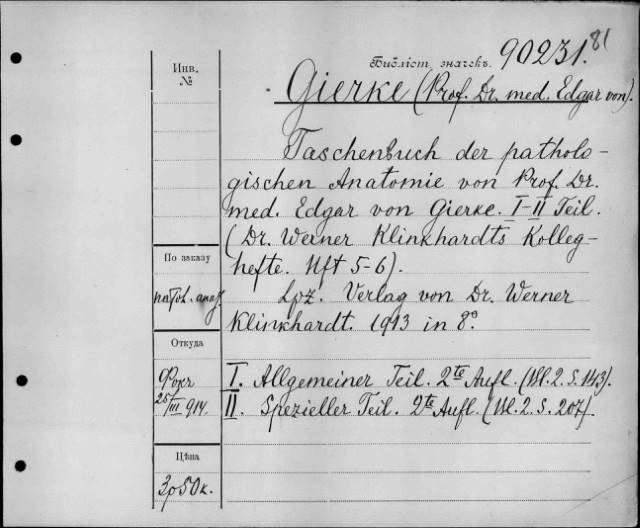 81
Библiот. значекъ 90231.
Инв.
№
Gierke (Prof. Dr. med. Edgar von).
Taschenbuch der patholo-
gischen Anatomie von Prof. Dr.
med. Edgar von Gierke. I-II Teil.
(Dr. Werner Klinkhardts Kolleg-
hefte. Hft 5-6).
По заказу
патол. анат.
Lpz. Verlag von Dr. Werner
Klinkhardt. 1913 in 8°
Откуда
I. Allgemeiner Teil. 2te Aufl. (Bl. 2. S. 143).
II. Spezieller Teil. 2te Aufl. (Bl. 2. S. 207).
Фокк
25/III 914.
Цѣна
3р50к.